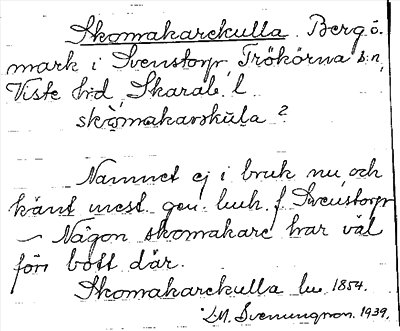 Skomakarekulla. Berg o.
mark i Svenstorp, Trökörna s:n,
Viste hd, Skarab. l.
skòmakarskùla ?
Namnet ej i bruk nu, och
känt mest gen. lmh. f. Svenstorp
— Någon skomakare har väl
förr bott där.
Skomakarekulla lm 1854.
L.M. Svenungson. 1939.